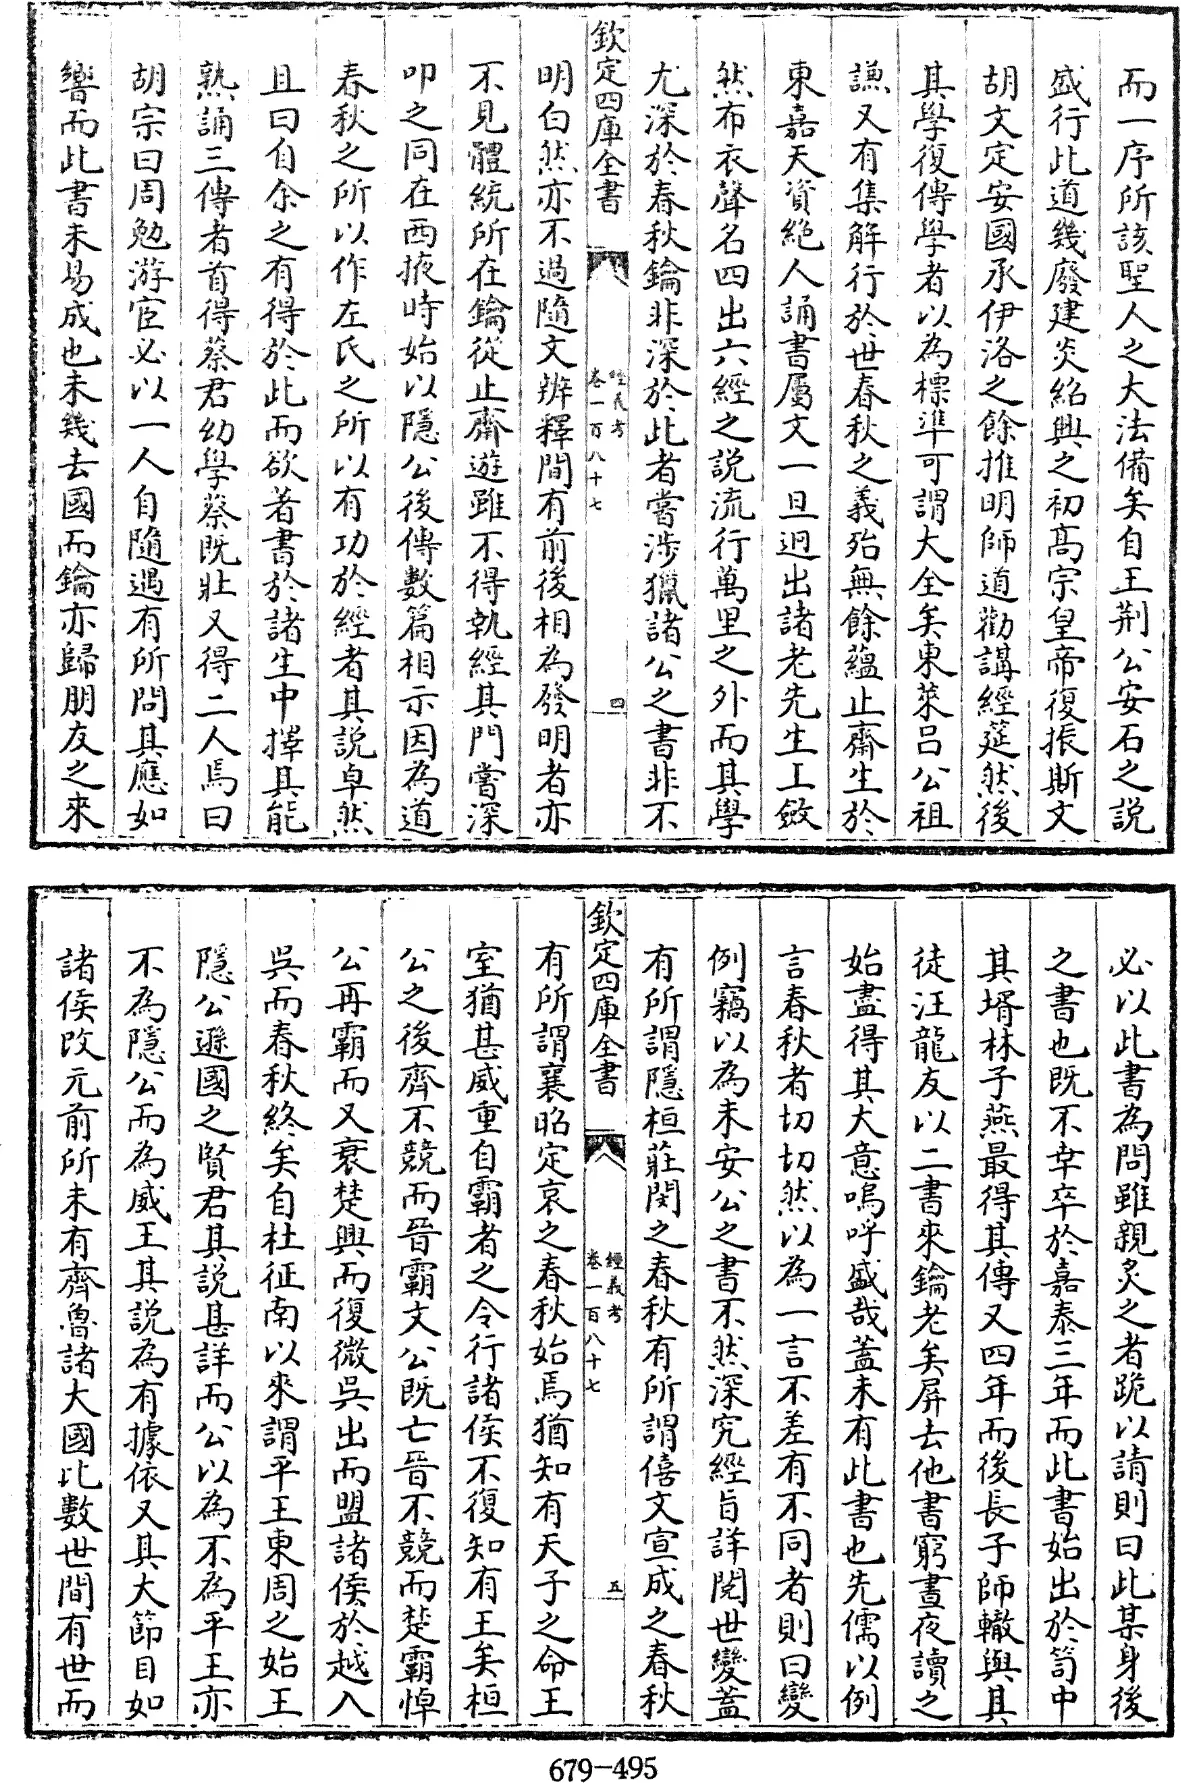 而一序所該聖人之大法備矣自王荆公安石之説
盛行此道幾廢建炎紹興之初髙宗皇帝復振斯文
胡文定安國承伊洛之餘推明師道勸講經筵然後
其學復傳學者以為標準可謂大全矣東萊吕公祖
謙又有集解行於世春秋之義殆無餘藴止齋生於
東嘉天資絶人誦書屬文一旦迥出諸老先生上斂
然布衣聲名四出六經之説流行萬里之外而其學
尤深於春秋鑰非深於此者嘗涉獵諸公之書非不
欽定四庫全書
經義考
卷一百八十七
四
明白然亦不過隨文辨釋間有前後相為發明者亦
不見體統所在鑰從止齋遊雖不得執經其門嘗深
叩之同在西掖時始以隱公後傳數篇相示因為道
春秋之所以作左氏之所以有功於經者其説卓然
且曰自余之有得於此而欲著書於諸生中擇其能
熟誦三傳者首得蔡君幼學蔡既壯又得二人焉曰
胡宗曰周勉游宦必以一人自隨遇有所問其應如
響而此書未易成也未幾去國而鑰亦歸朋友之來
必以此書為問雖親炙之者跪以請則曰此某身後
之書也既不幸卒於嘉泰三年而此書始出於笥中
其壻林子燕最得其傳又四年而後長子師轍與其
徒汪龍友以二書來鑰老矣屏去他書窮晝夜讀之
始盡得其大意嗚呼盛哉蓋未有此書也先儒以例
言春秋者切切然以為一言不差有不同者則曰變
例竊以為未安公之書不然深究經㫖詳閱世變蓋
有所謂隱桓莊閔之春秋有所謂僖文宣成之春秋
欽定四庫全書
經義考
卷一百八十七
五
有所謂襄昭定哀之春秋始焉猶知有天子之命王
室猶甚威重自霸者之令行諸侯不復知有王矣桓
公之後齊不競而晉霸文公既亡晉不競而楚霸悼
公再霸而又衰楚興而復微吳出而盟諸侯於越入
吳而春秋終矣自杜征南以來謂平王東周之始王
隱公遜國之賢君其説甚詳而公以為不為平王亦
不為隱公而為威王其説為有據依又其大節目如
諸侯改元前所未有齊魯諸大國比數世間有世而
679-495